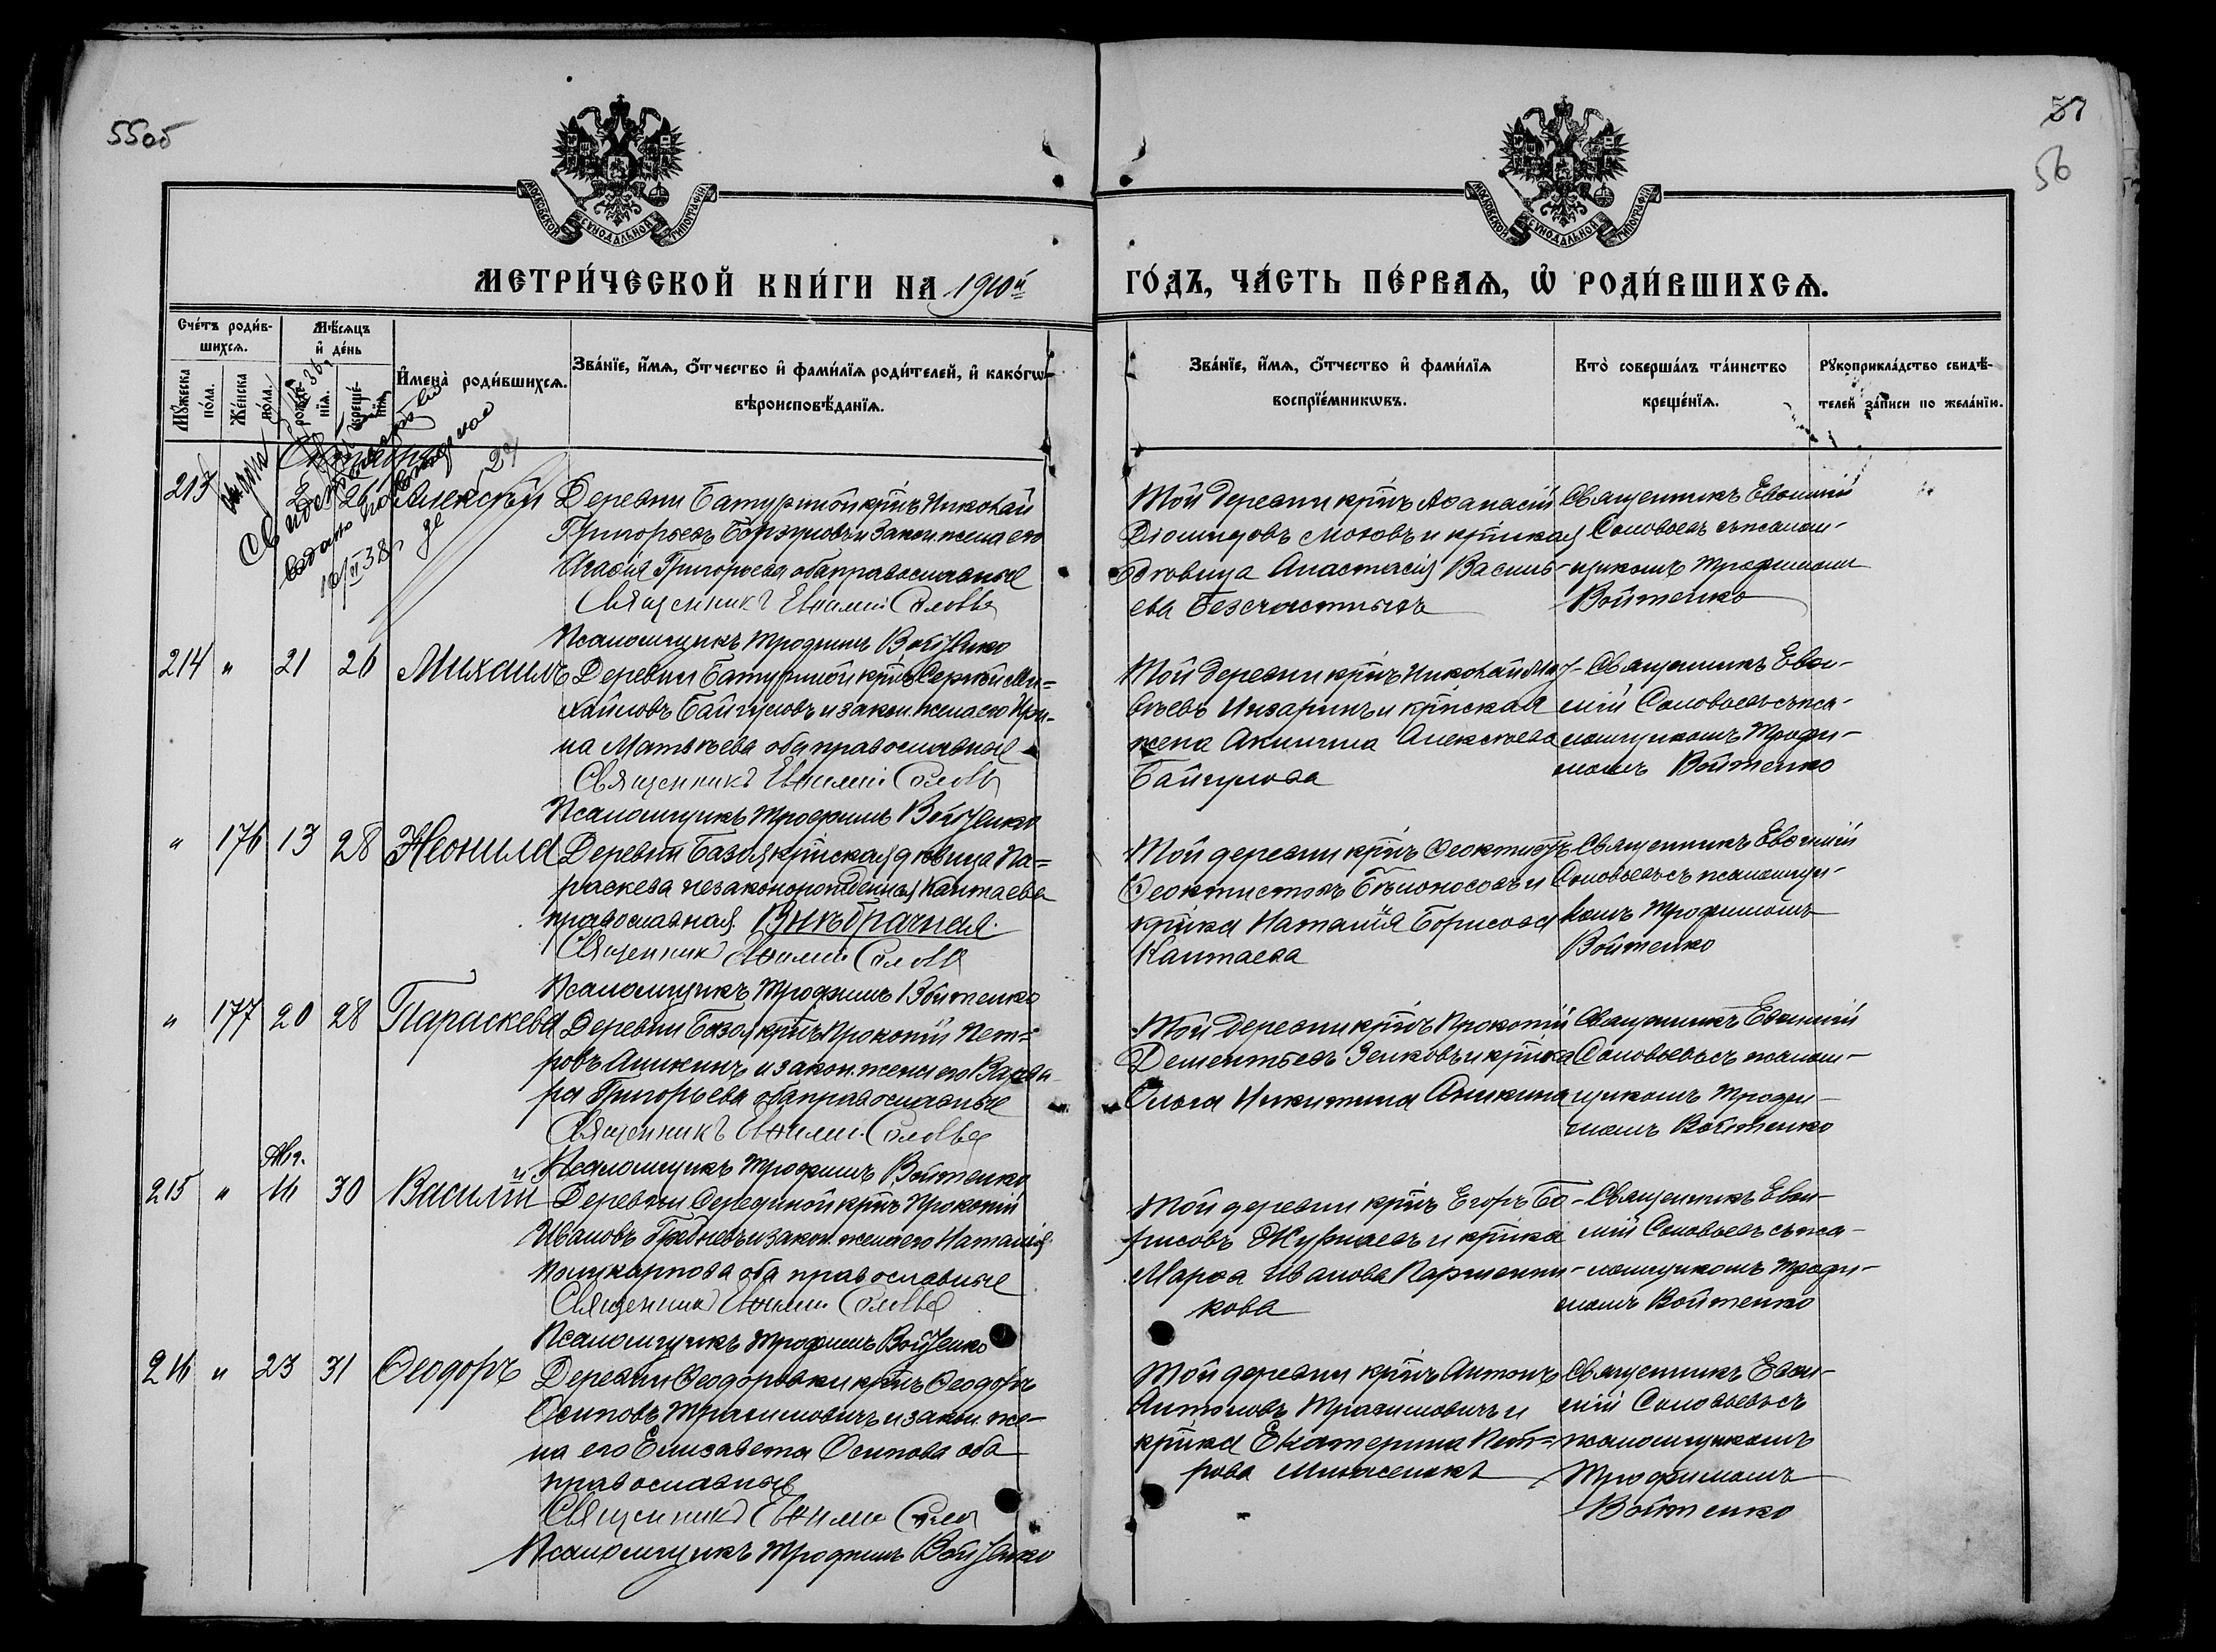 55об
57
56
МОСКОВСКОЙ СѴНОДАЛЬНОЙ ТИПОГРАФІИ
МОСКОВСКОЙ СѴНОДАЛЬНОЙ ТИПОГРАФІИ
МЕТРИ́ЧЕСКОЙ КНИ́ГИ НА 1910й
ГО́ДЪ, ЧА́СТЬ ПЕ́РВАѦ, Ѡ҆ РОДИ́ВШИХСѦ.
Сче́тъ роди́в-
шихсѧ.
Мꙋжеска по́ла.
Же́нска по́ла.
Мѣ́сѧцъ
и҆ де́нь
рожде́-
нїѧ.
креще́-
нїѧ.
И҆мена̀ роди́вшихсѧ.
Зва́нїе, и҆́мѧ, ѻ҆́тчество и҆ фами́лїѧ роди́телей, и҆ како́гѡ
вѣроисповѣ́данїѧ.
Зва́нїе, и҆́мѧ, ѻ҆́тчество и҆ фами́лїѧ
воспрїе́мникѡвъ.
Кто̀ соверша́лъ та́инство
креще́нїѧ.
Рꙋкоприкла́дство свидѣ́-
телей за́писи по жела́нїю.
213 2 26 Алексѣй
Деревни Батуриной кр҃нъ Николай
Григорьевъ и закон. жена его
Григорьева оба православные
Священникъ Евѳимій Соловьев
Псаломщикъ Трофимъ Войтенко
Той деревни кр҃нъ Аѳанасій
Діомидовъ и кр҃нская
дѣвица Анастасія Василь-
ева Безсчастныхъ
Священникъ Евѳимій
Соловьевъ съ псалом-
щикомъ Трофимомъ
Войтенко
214 " 21 26 Михаилъ
Деревни Батуриной кр҃нъ Сергѣй Ми=
хайловъ Байгуловъ и закон. жена его Ири-
на Матвѣева оба православные
Священникъ Евѳимій Соловьев
Псаломщикъ Трофимъ Войтенко
Той деревни кр҃нъ Николай Мат-
вѣевъ и кр҃нская
жена Акилина Алексѣева
Байгулова
Священникъ Евѳи-
мій Соловьевъ съ пса-
ломщикомъ Трофи-
момъ Войтенко
" 176 13 28 Неонила
Деревни Базоя кр҃нская дѣвица Па=
раскева незаконорожденная Каштаева
православная. Внѣбрачная.
Священникъ Евѳимій Соловьев
Псаломщикъ Трофимъ Войтенко
Той деревни кр҃нъ Ѳеоктистъ
Ѳеоктистовъ Бѣлоносовъ и
кр҃нка Наталія Борисова
Каштаева
Священникъ Евѳимій
Соловьевъ съ псаломщи-
комъ Трофимомъ
Войтенко
" 177 20 28 Параскева
Деревни Базоя кр҃нъ Прокопій Пет=
ровъ Аникинъ и закон. жена его Варва-
ра Григорьева оба православные
Священникъ Евѳимій Соловьев
Псаломщикъ Трофимъ Войтенко
Той деревни кр҃нъ Прокопій
Дементьевъ Зенковъ и кр҃нка
Ольга Никитина Аникина
Священникъ Евѳимій
Соловьевъ съ псалом-
щикомъ Трофи-
момъ Войтенко
Авг.
215 " 16 30 Василій
Деревни Серединой кр҃нъ Прокопій
Ивановъ Гребневъ и закон. жена его Наталія
Поликарпова оба православные
Священникъ Евѳимій Соловьев
Псаломщикъ Трофимъ Войтенко
Той деревни кр҃нъ Егоръ Бо-
рисовъ и кр҃нка
Марѳа Иванова
кова
Священникъ Евѳи-
мій Соловьевъ съ пса-
ломщикомъ Трофи-
момъ Войтенко
216 " 23 31 Ѳеодоръ
Деревни Ѳеодоровки кр҃нъ Ѳеодоръ
Осиповъ и закон. же-
на его Елизавета Осипова оба
православные
Священникъ Евѳимій Солов
Псаломщикъ Трофимъ Войтенко
Той деревни кр҃нъ Антонъ
Антоновъ и
кр҃нка Екатерина Пет=
рова
Священникъ Евѳи-
мій Соловьевъ съ
псаломщикомъ
Трофимомъ
Войтенко